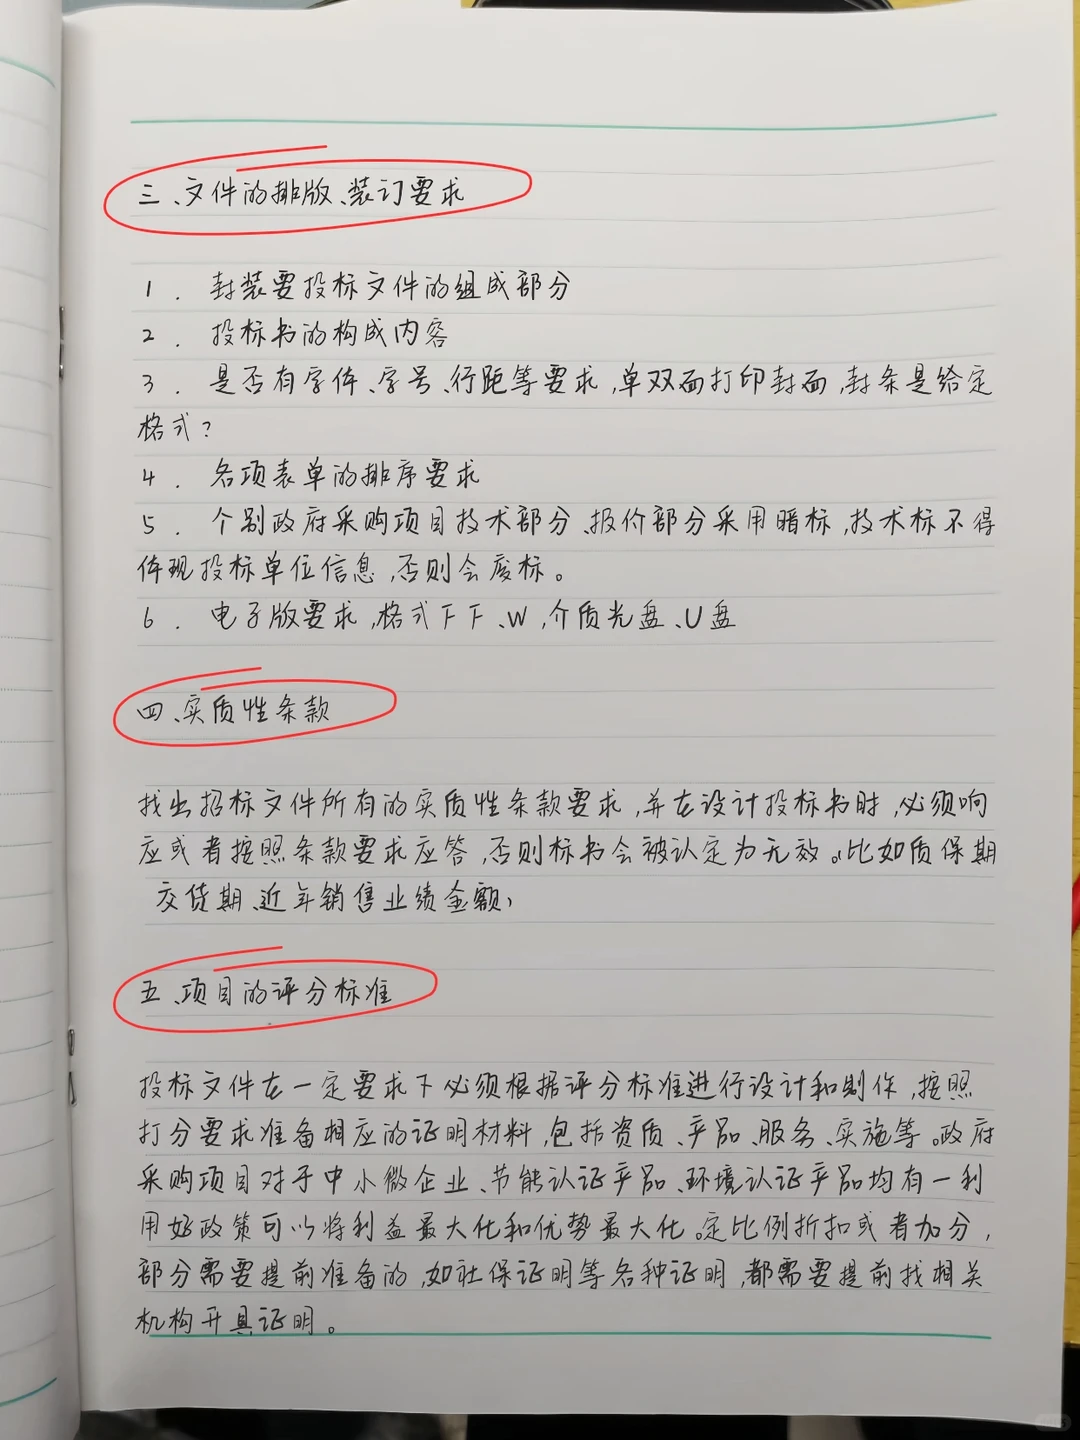 三、文件的排版、装订要求
1. 封装要投标文件的组成部分
2. 投标书的构成内容
3. 是否有字体、字号、行距等要求,单双面打印封面,封条是给定
格式?
4. 各项表单的排序要求
5. 个别政府采购项目技术部分、报价部分采用暗标,技术标不得
体现投标单位信息,否则会废标。
6. 电子版要求,格式下下、W,介质光盘、U盘
四、实质性条款
找出招标文件所有的实质性条款要求,并在设计投标书时,必须响
应或者按照条款要求应答,否则标书会被认定为无效。比如质保期
交货期、近年销售业绩金额,
五、项目的评分标准
投标文件在一定要求下必须根据评分标准进行设计和制作,按照
打分要求准备相应的证明材料,包括资质、产品、服务、实施等。政府
采购项目对于中小微企业、节能认证产品、环境认证产品均有一利
用好政策可以将利益最大化和优势最大化。定比例折扣或者加分,
部分需要提前准备的,如社保证明等各种证明,都需要提前找相关
机构开具证明。